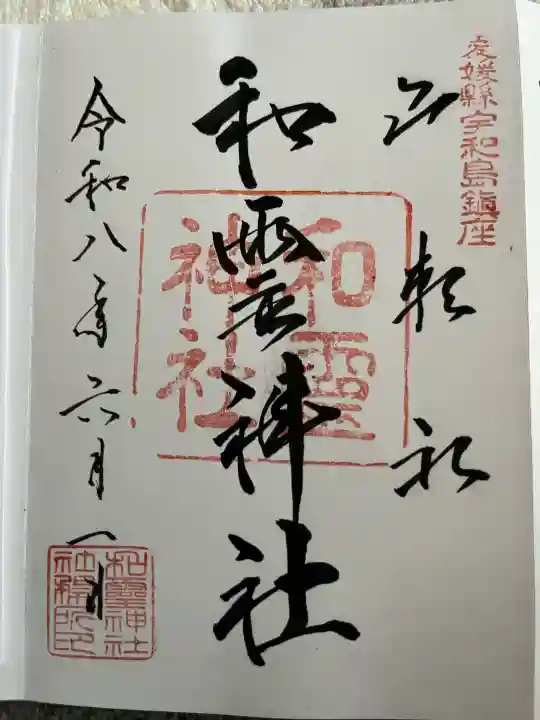 愛媛縣宇和島鎮座
奉拝
和霊神社
和靈
神社
令和八年六月一日
和靈神社
社務所印